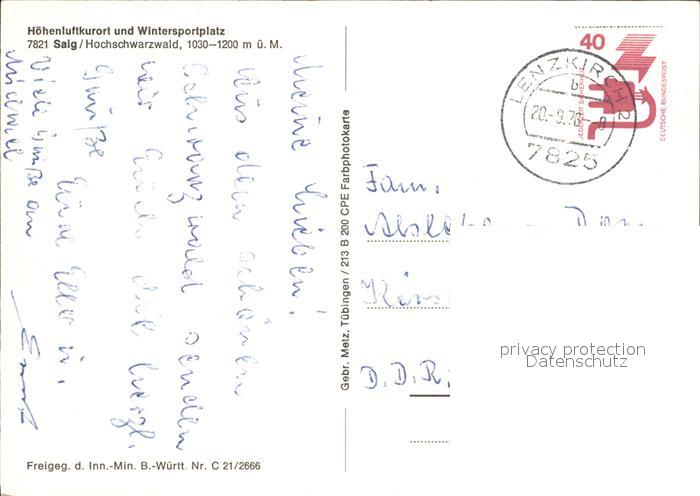 Höhenluftkurort und Wintersportplatz
7821 Saig / Hochschwarzwald, 1030–1200 m ü. M.
Meine Lieben!
Aus dem schönen
Schwarzwald senden
wir Euch die herzl.
Grüße
Viele Grüße an
Freigeg. d. Inn.-Min. B.-Württ. Nr. C 21/2666
Gebr. Metz, Tübingen / 213 B 200 CPE Farbphotokarte
40
JEDERZEIT SICHERHEIT
DEUTSCHE BUNDESPOST
LENZKIRCH 2
b
20.-9.76-8
7825
Fam.
D.D.R.
privacy protection
Datenschutz